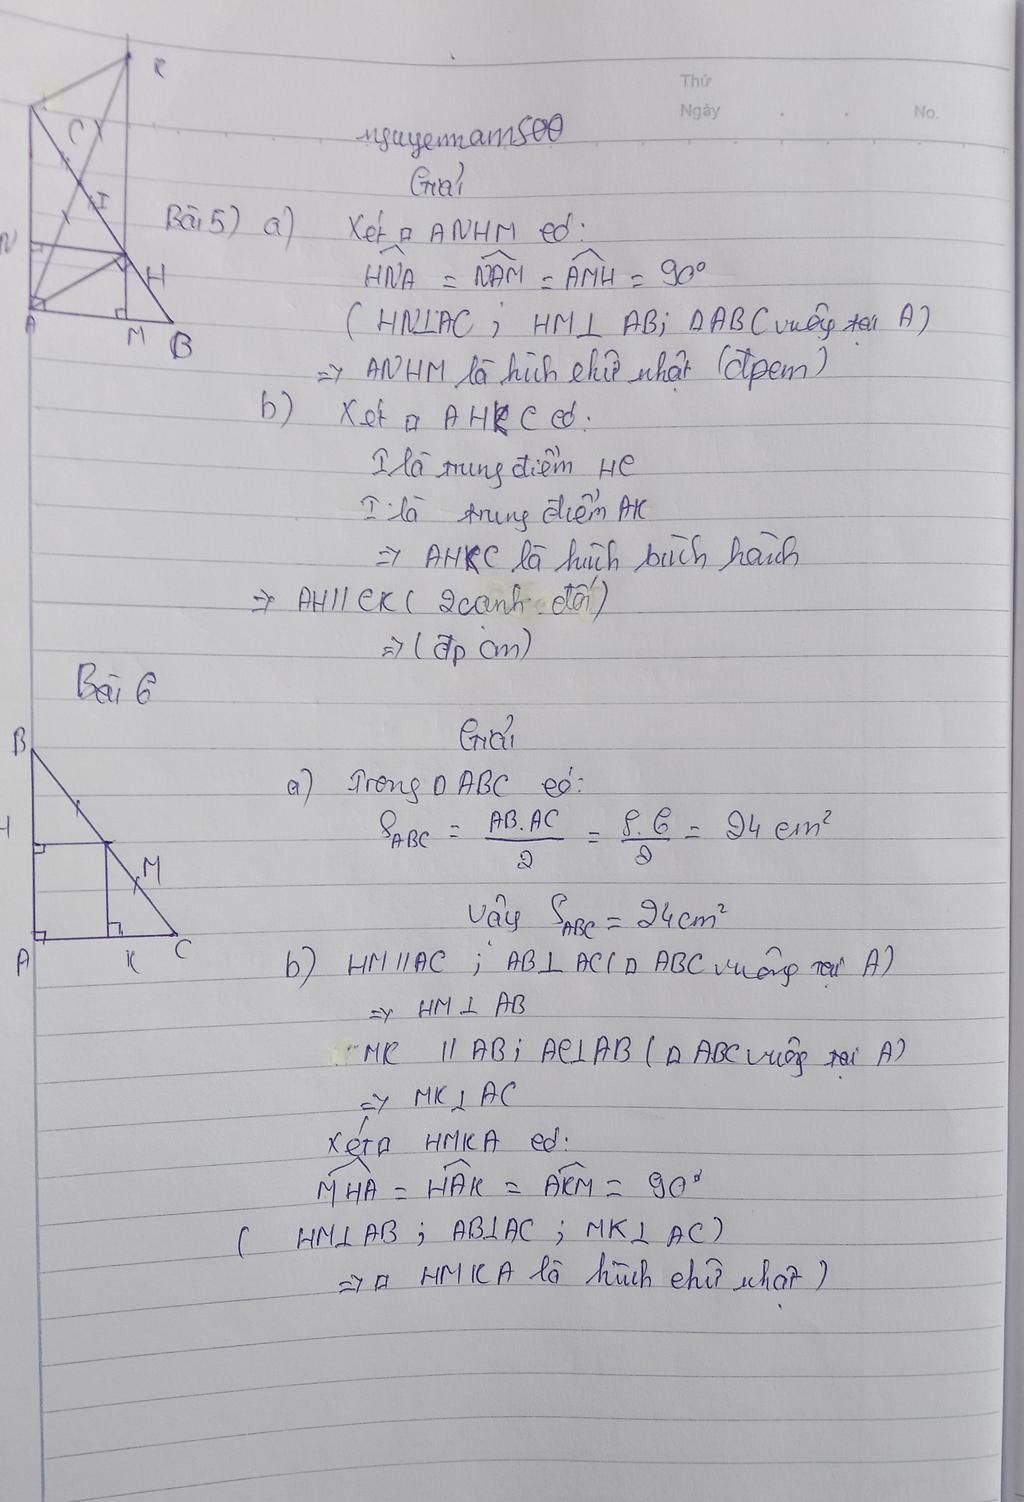 Thứ
Ngày . . No.
nguyennam500
Giải
Bài 5) a) Xét □ ANHM có:
HNA = NAM = AMH = 90°
( HN⊥AC ; HM⊥ AB; ΔABC vuông tại A)
=> ANHM là hình chữ nhật (đpcm)
b) Xét □ AHKC có:
I là trung điểm HC
I là trung điểm AK
=> AHKC là hình bình hành
=> AH // CK ( 2 cạnh đối)
=> (đpcm)
K
C
I
N
H
A
M
B
Bài 6
Giải
a) Trong Δ ABC có:
S_ABC = AB.AC / 2 = 8.6 / 2 = 24 cm²
Vậy S_ABC = 24cm²
b) HM // AC ; AB⊥ AC ( Δ ABC vuông tại A)
=> HM ⊥ AB
MK // AB; AC⊥AB ( Δ ABC vuông tại A)
=> MK⊥ AC
Xét □ HMKA có:
MHA = HAK = AKM = 90°
( HM⊥AB ; AB⊥AC ; MK⊥ AC)
=> □ HMKA là hình chữ nhật )
B
H
M
A
K
C